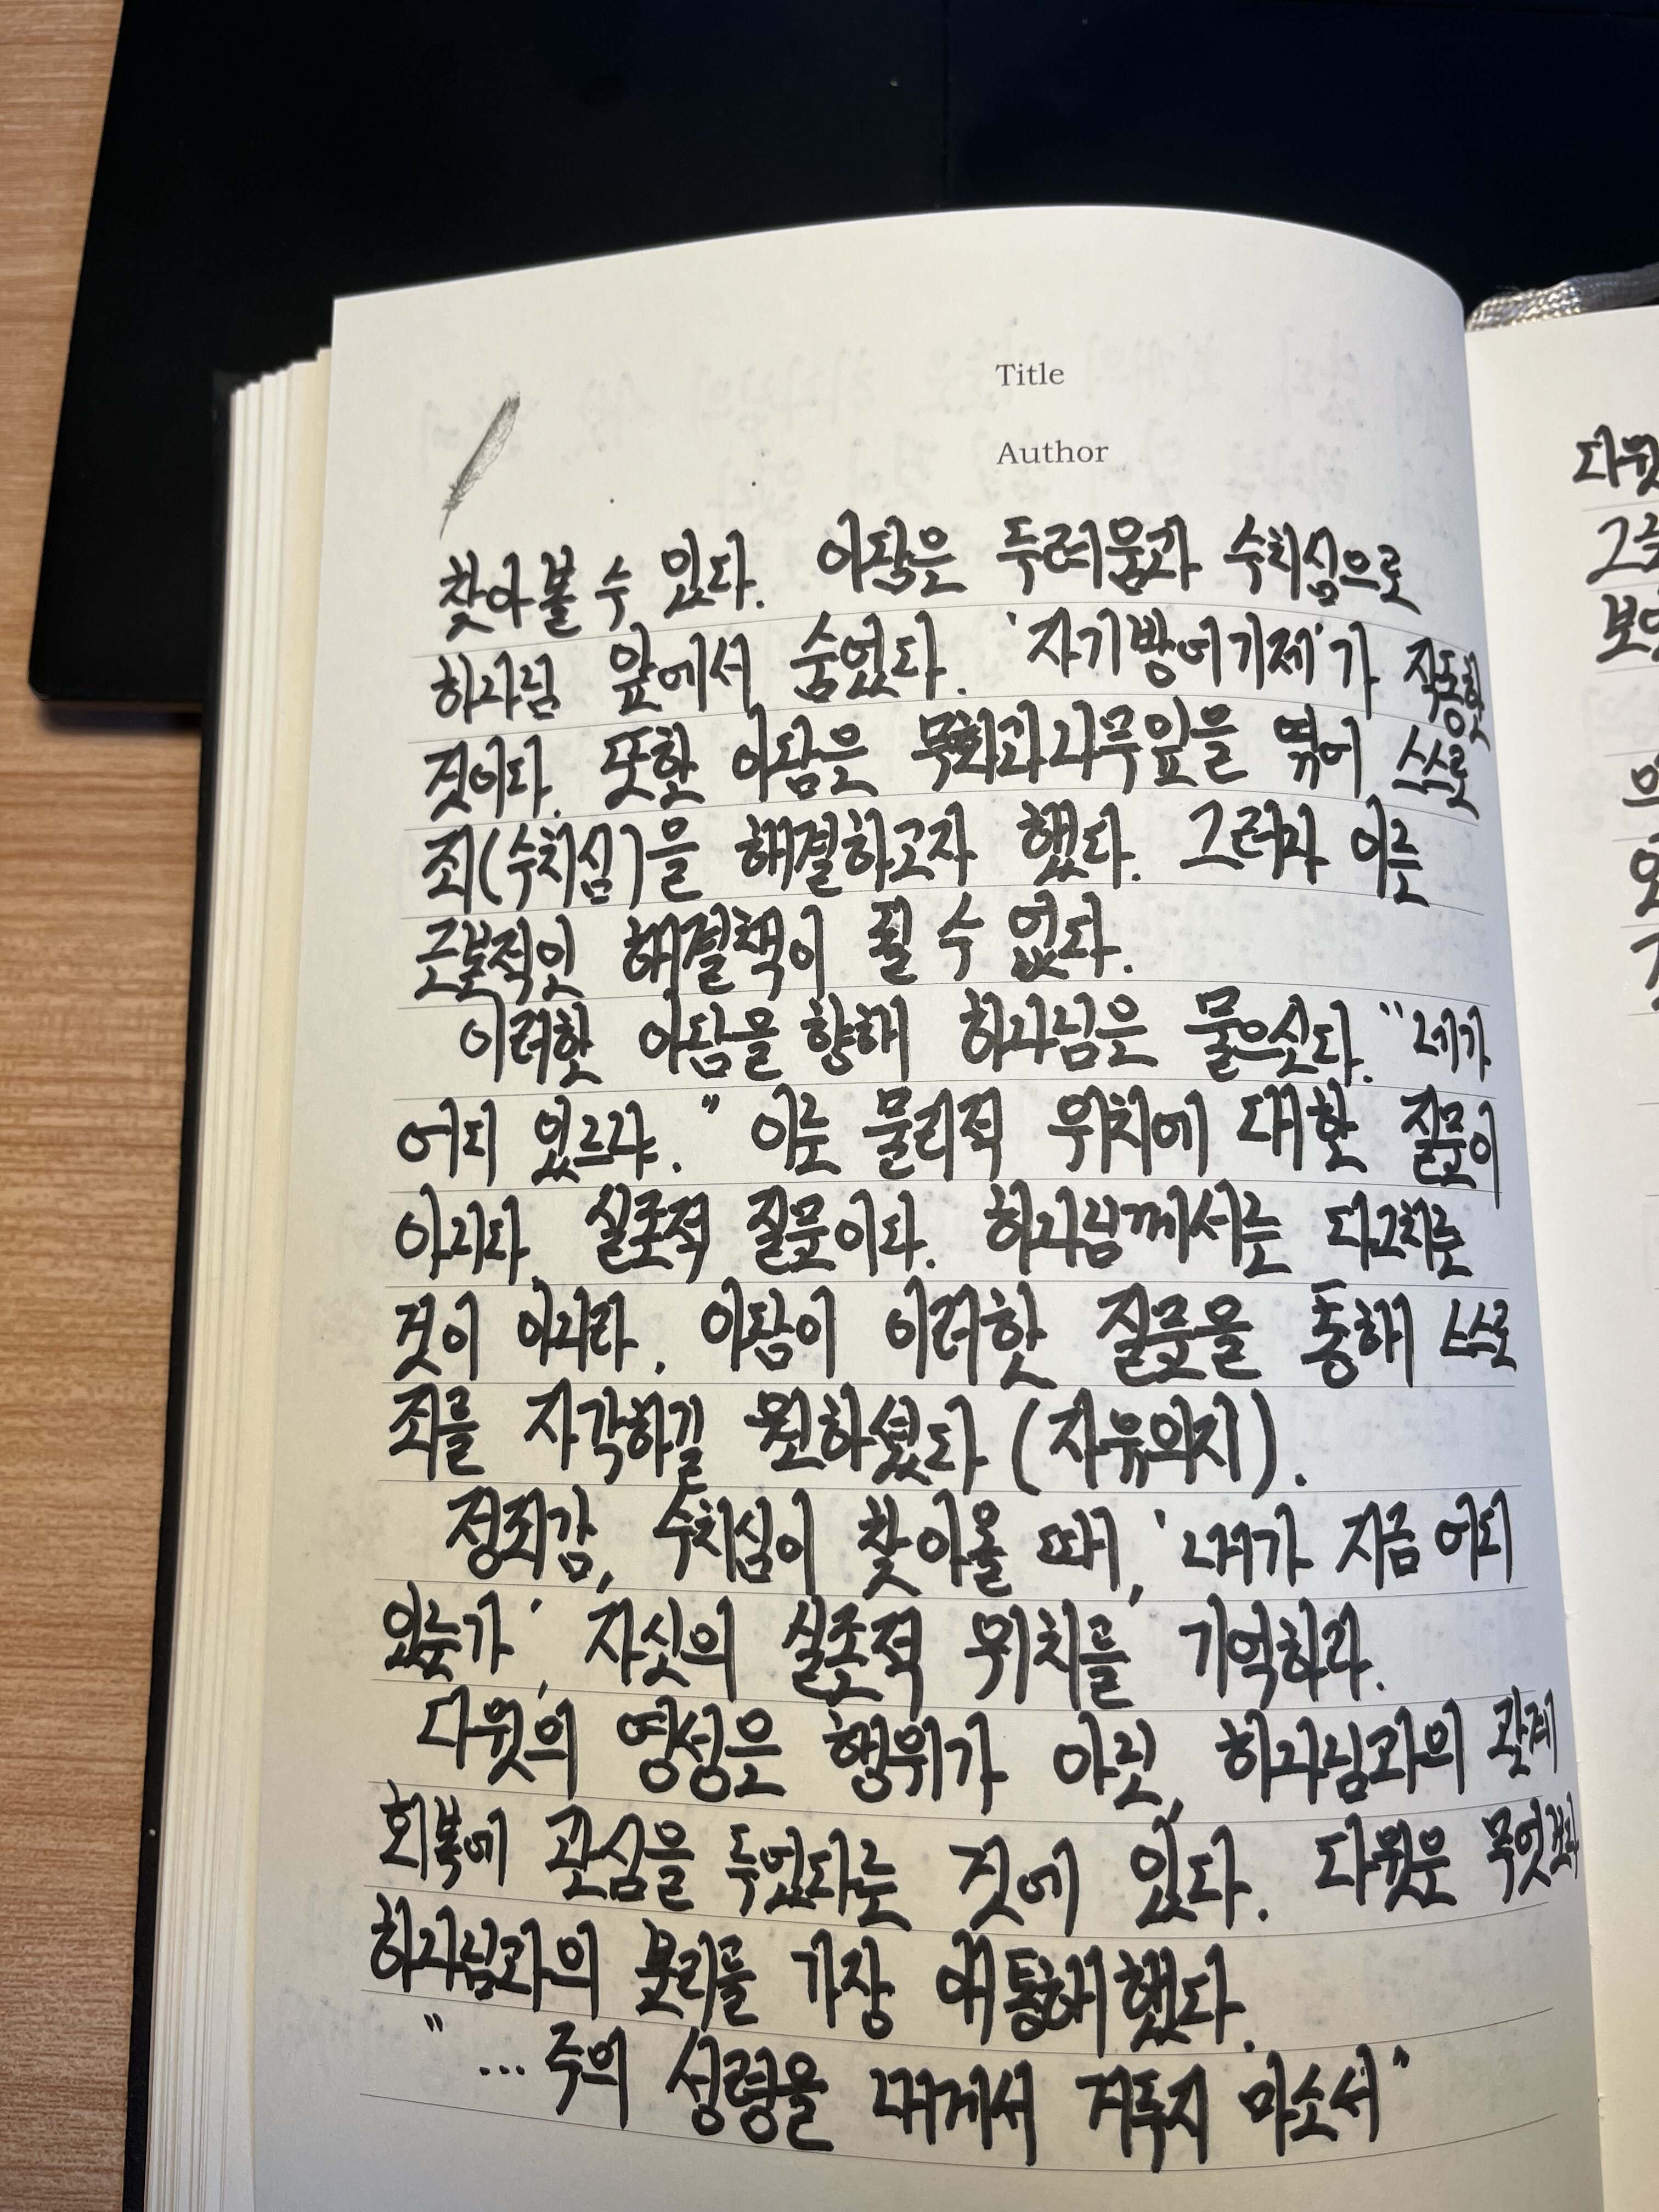 Title
Author
찾아볼 수 있다. 아담은 두려움과 수치심으로
하나님 앞에서 숨었다. '자기방어기제'가 작동한
것이다. 또한 아담은 무화과나무잎을 엮어 스스로
죄(수치심)을 해결하고자 했다. 그러나 이는
근본적인 해결책이 될 수 없다.
이러한 아담을 향해 하나님은 물으신다. "네가
어디 있느냐." 이는 물리적 위치에 대한 질문이
아니다, 실존적 질문이다. 하나님께서는 다그치는
것이 아니라, 아담이 이러한 질문을 통해 스스로
죄를 자각하길 원하셨다 (자유의지).
정죄감, 수치심이 찾아올 때, '내가 지금 어디
있는가', 자신의 실존적 위치를 기억하라.
다윗의 영성은 행위가 아닌, 하나님과의 관계
회복에 관심을 두었다는 것에 있다. 다윗은 무엇보다
하나님과의 분리를 가장 애통해했다.
"...주의 성령을 내게서 거두지 마소서"
다윗